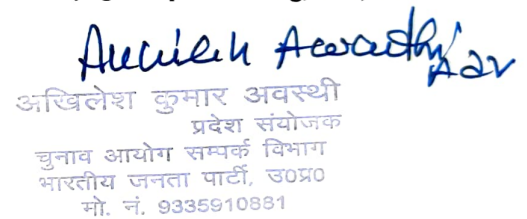 Akhilesh Awasthi
Adv
अखिलेश कुमार अवस्थी
प्रदेश संयोजक
चुनाव आयोग सम्पर्क विभाग
भारतीय जनता पार्टी, उ0प्र0
मो. नं. 9335910881